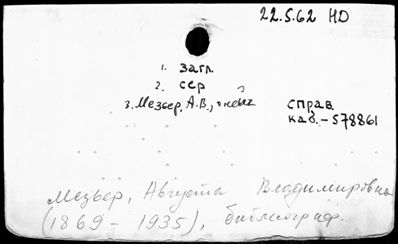 22.5.62 HD
1. загл.
2. сер
3. Мезьер, А.В., о ней
справ.
каб. – 578861
Мезьер, Августа Владимировна
(1869 – 1935), библиограф.